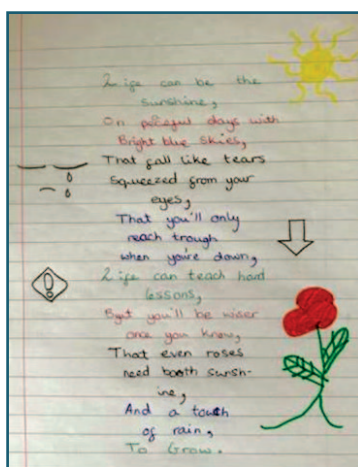 Life can be the
sunshine,
On peaceful days with
Bright blue skies,
That fall like tears
Squeezed from your
eyes,
That you'll only
reach trough
when you're down,
Life can teach hard
lessons,
Bµt you'll be wiser
once you know,
That even roses
need booth sunsh-
ine,
And a touch
of rain,
To Grow.